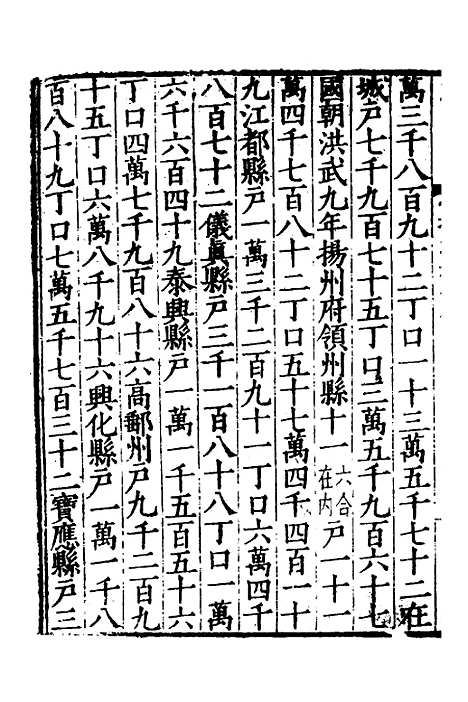 萬三千八百九十二丁口一十三萬五千七十二在
城戸七千九百七十五丁口三萬五千九百六十七
國朝洪武九年揚州府領州縣十一六合在内戸一十一
萬四千七百八十二丁口五十七萬四千四百一十
九江都縣戸一萬三千二百九十一丁口六萬四千
八百七十二儀眞縣戸三千一百八十八丁口一萬
六千六百四十九泰興縣戸一萬一千五百五十六
丁口四萬七千九百八十六高郵州戸九千二百九
十五丁口六萬八千九十六興化縣戸一萬一千八
百八十九丁口七萬五千七百三十二寶應縣戸三